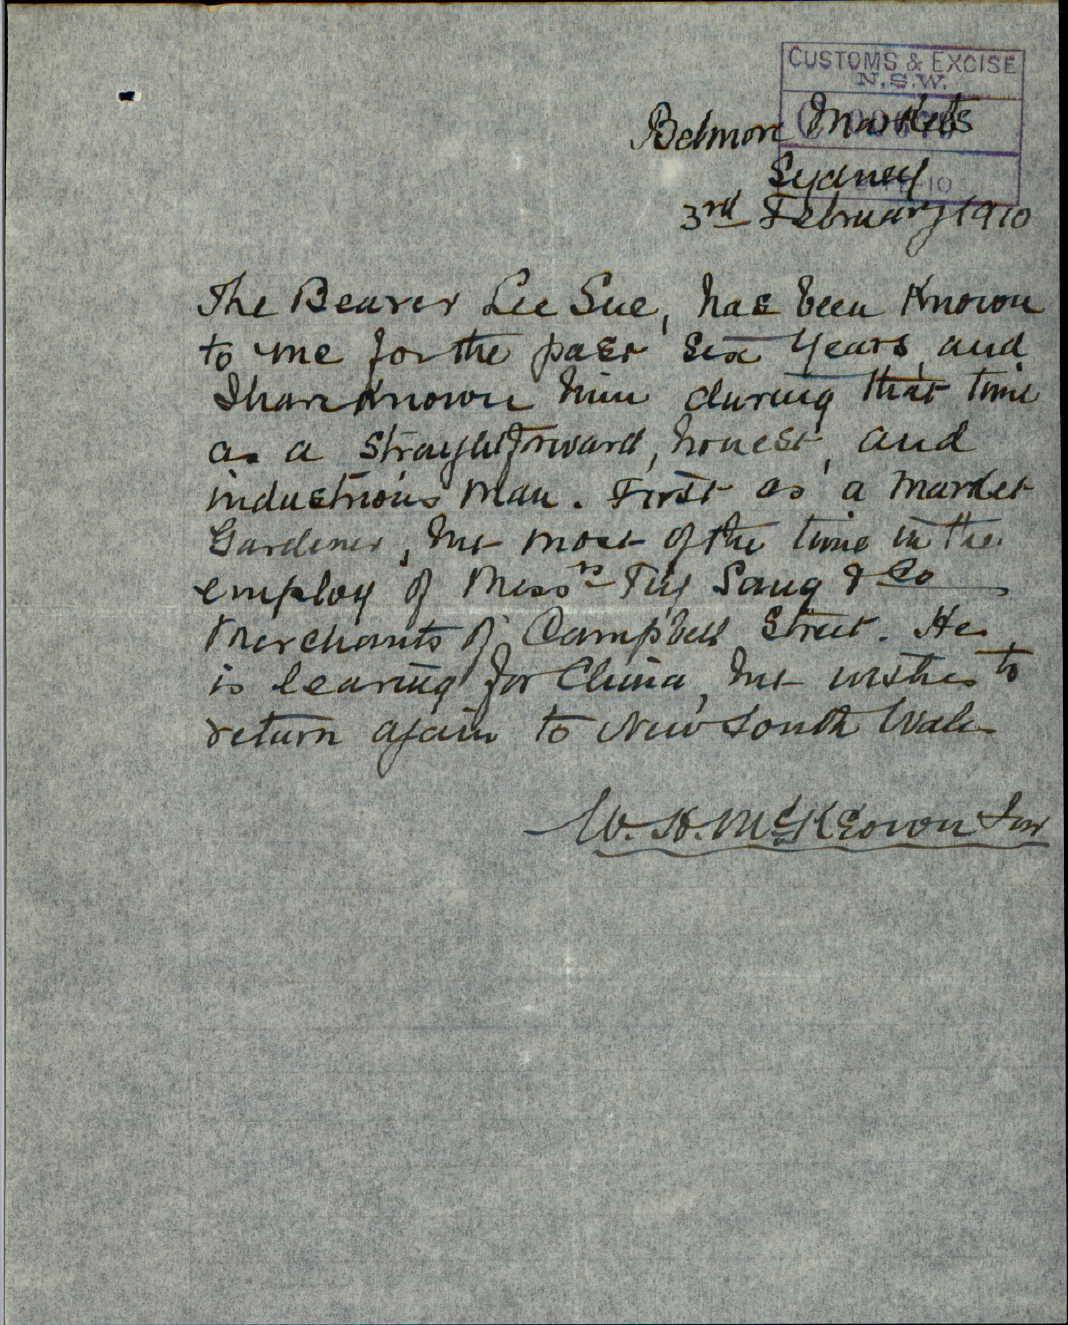 CUSTOMS & EXCISE
N.S.W.
Belmore Markets
Sydney
3rd February 1910
The Bearer Lee Sue, has been Known
to me for the past six years, and
I have Known him during that time
as a straightforward, honest, and
industrious man. First as a market
Gardener, but most of the time in the
employ of Messrs Tiy Sang & Co
Merchants of Campbell Street. He
is leaving for China, but wishes to
return again to New South Wales
W. H. McKeown Junr